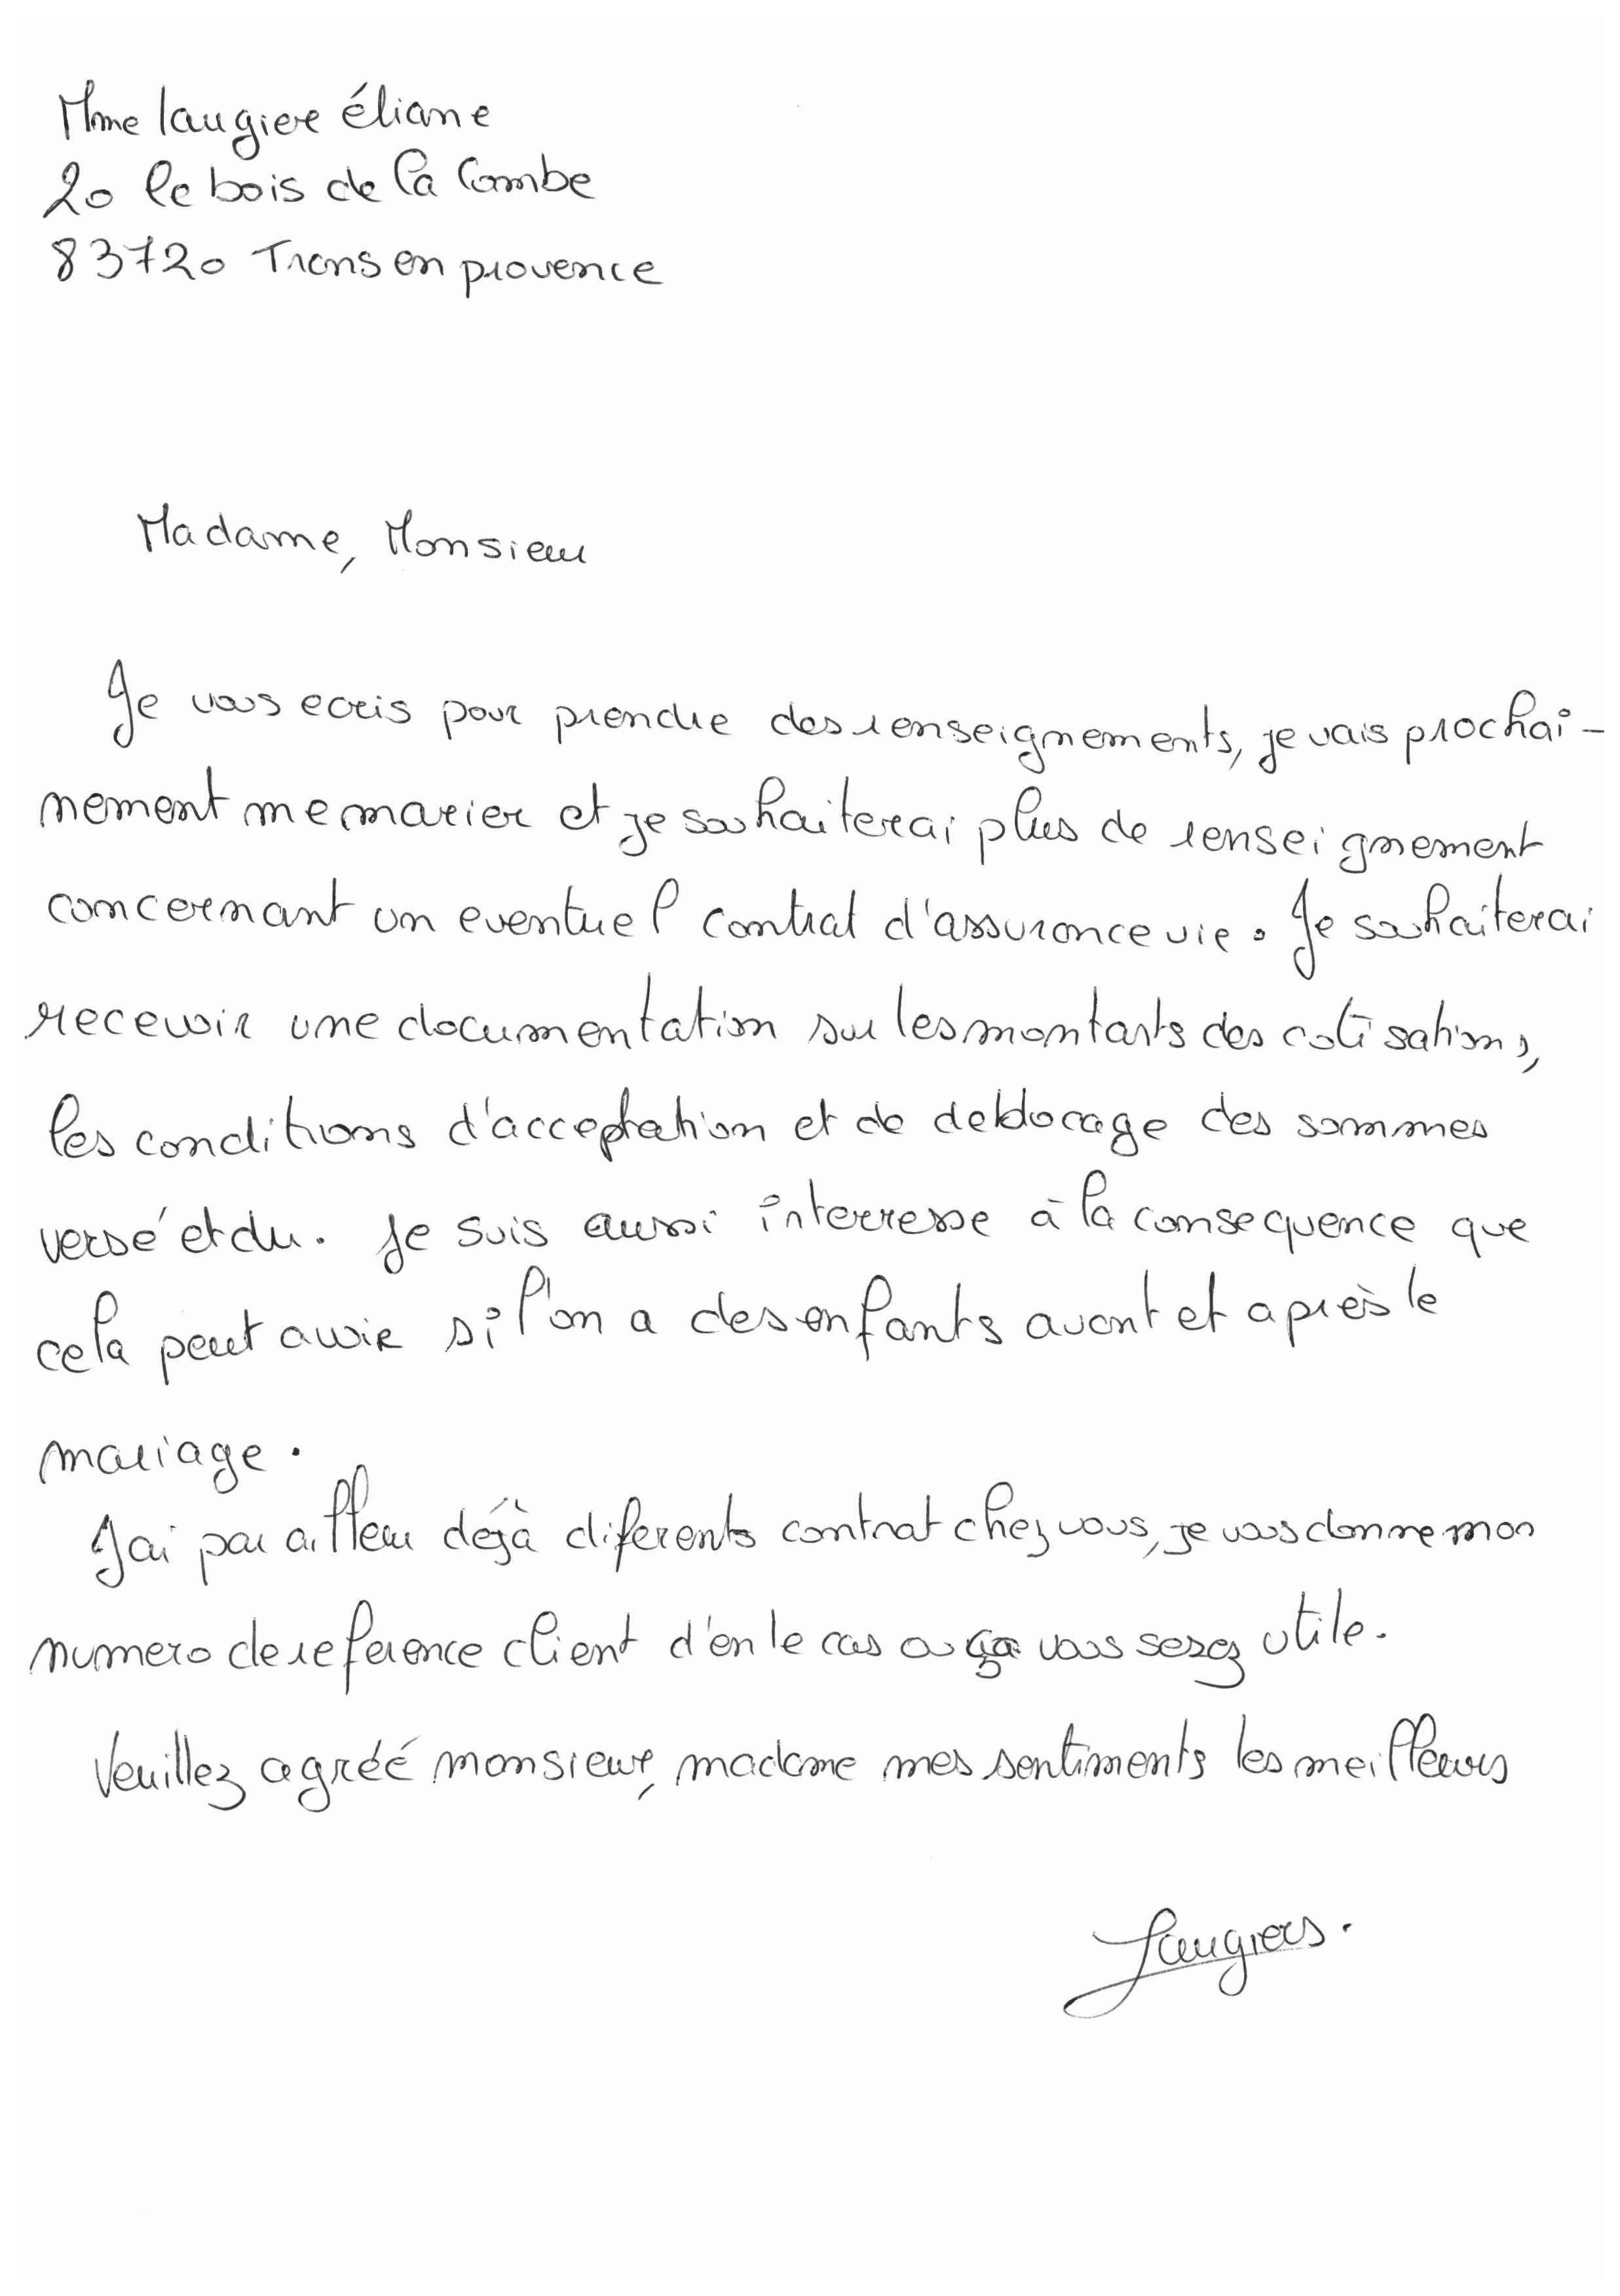 Mme laugier éliane
20 le bois de la Combe
83720 Trans en provence
Madame, Monsieur
Je vous ecris pour prendre des renseignements, je vais prochai-
nement me marier et je souhaiterai plus de renseignement
concernant un eventuel contrat d'assurance vie. Je souhaiterai
recevoir une documentation sur les montants des cotisations,
les conditions d'acceptation et de deblocage des sommes
versé et du. Je suis aussi interresse à la consequence que
cela peut avoir si l'on a des enfants avant et après le
mariage.
J'ai par ailleur déjà diferents contrat chez vous, je vous donne mon
numero de reference client d'en le cas ou ça vous serez utile.
Veuillez agréé monsieur, madame mes sentiments les meilleurs
Laugier.